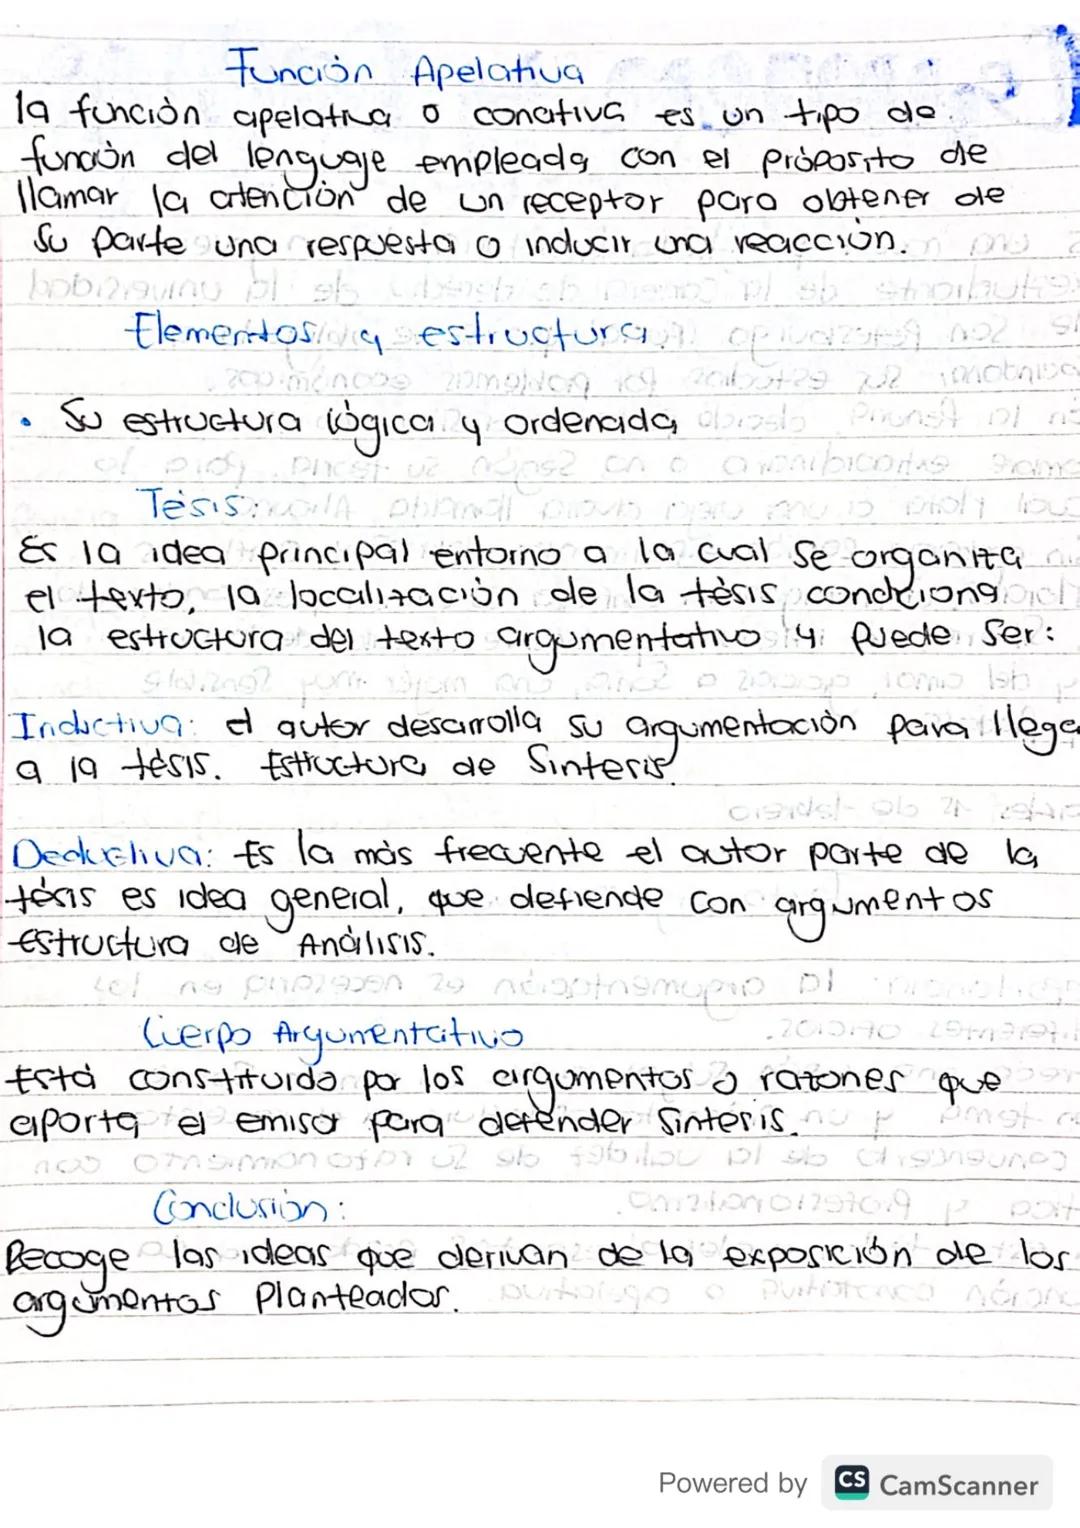 Función Apelativa
la función apelativa o conativa es un tipo de
función del lenguaje empleada con el próposito de
llamar la atención de un receptor para obtener de
su parte una respuesta o inducir una reacción.
Elementos y estructura
• Su estructura lógica y ordenada
Tésis
Es la idea principal entorno a la cual se organiza
el texto, la localización de la tésis condiciona
la estructura del texto argumentativo y puede ser:
Inductiva: el autor desarrolla su argumentación para llega
a la tésis. Estructura de Sintesis
Deductiva: Es la más frecuente el autor parte de la
tésis es idea general, que defiende con argumentos
estructura de Análisis.
Cuerpo Argumentativo
Está constituido por los argumentos o razones que
aporta el emisor para defender Sintesis.
Conclusión:
Recoge las ideas que derivan de la exposición de los
argumentos Planteados.
Powered by CS CamScanner